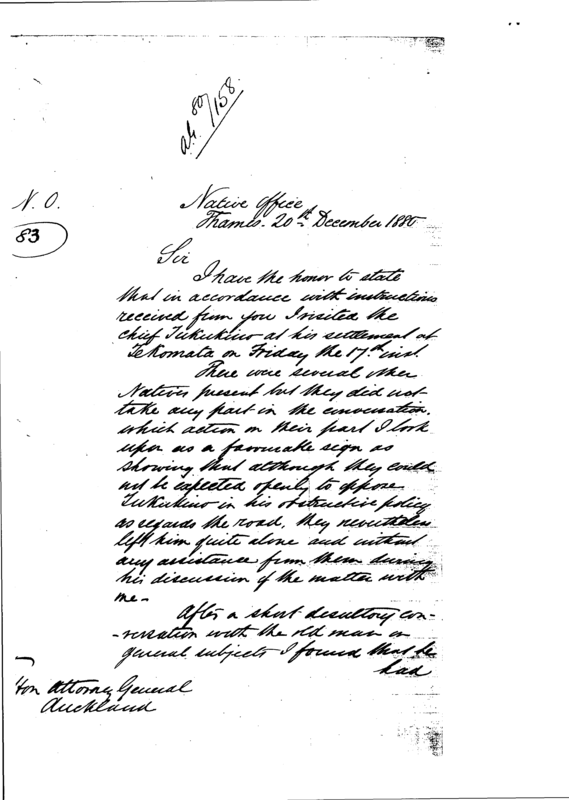 80/158
N. O.
83
Native Office
Thames. 20th December 1880
Sir
I have the honor to state
that in accordance with instructions
received from you I visited the
chief Tukukino at his settlement at
Te Komata on Friday the 17th inst.
There were several other
Natives present but they did not
take any part in the conversation.
which action on their part I look
upon as a favourable sign as
showing that although they could
not be expected openly to oppose
Tukukino in his obstructive policy
as regards the road, they nevertheless
left him quite alone and without
any assistance from them during
his discussion of the matter with
me-
After a short desultory con-
-versation with the old man on
general subjects I found that he
had
Hon Attorney General
Auckland